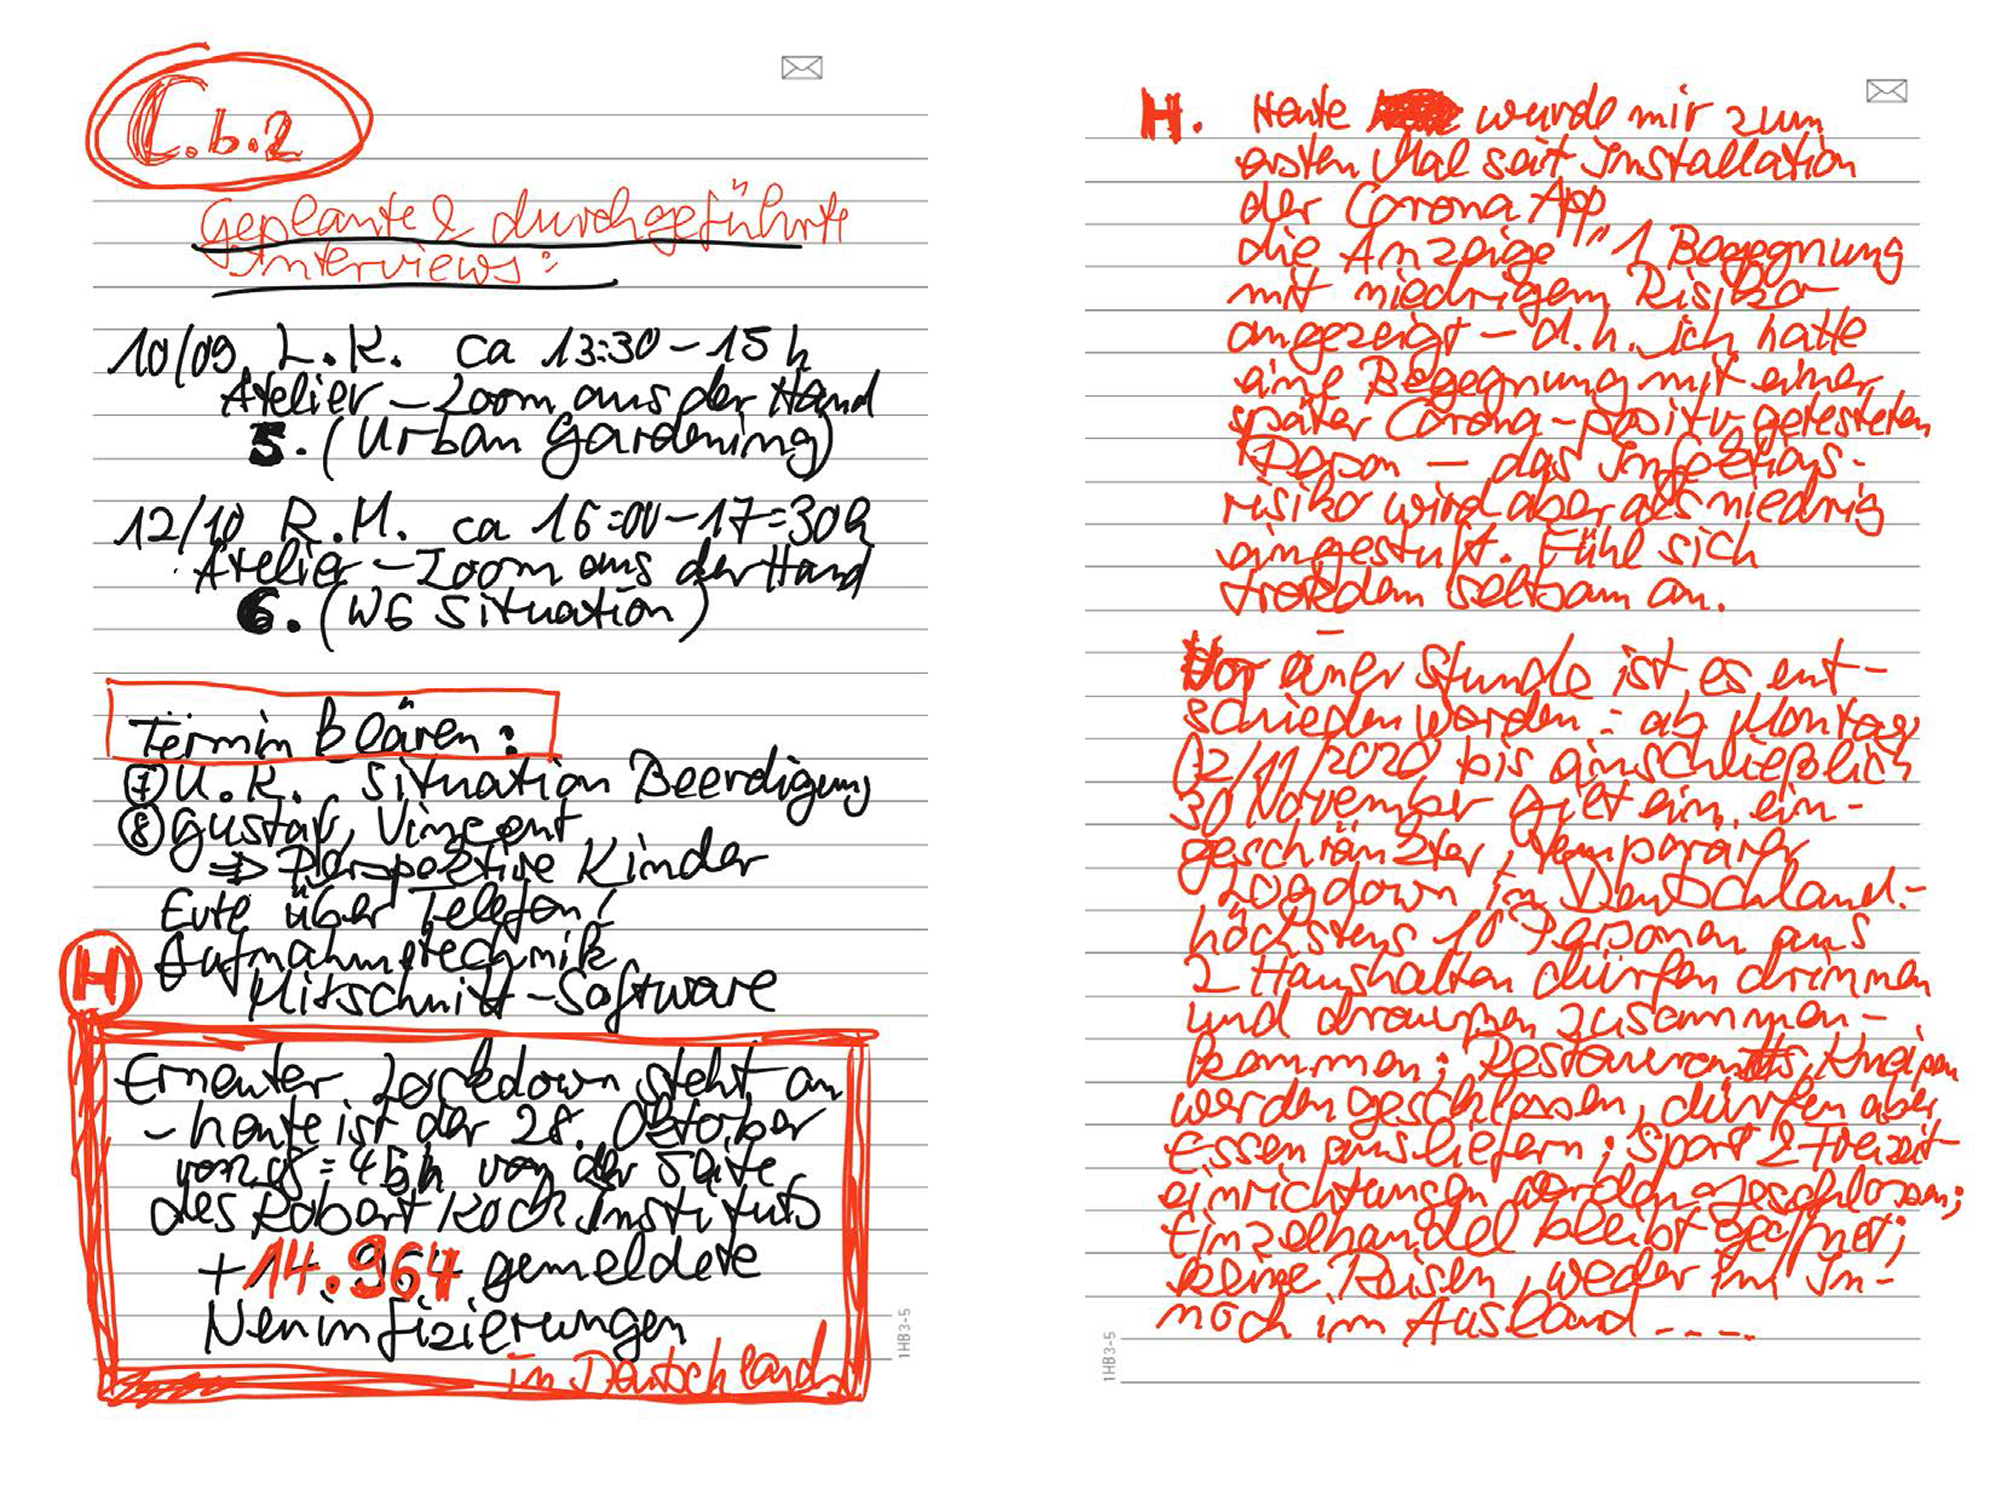 C.b.2
Geplante & durchgeführte
Interviews:
10/09 L.K. ca 13:30-15h
Atelier - Zoom aus der Hand
5. (Urban Gardening)
12/10 R.M. ca 16:00-17:30h
Atelier - Zoom aus der Hand
6. (WG Situation)
Termin klären:
7 U.K. Situation Beerdigung
8 Gustav, Vincent
⇒ Perspektive Kinder
Evte über Telefon!
Aufnahmetechnik
H
Mitschnitt-Software
Erneuter Lockdown steht an
- heute ist der 28. Oktober
von der Seite
des Robert Koch Instituts
+ 14.964 gemeldete
Neuinfizierungen
in Deutschland
1HB3-5
H. Heute wurde mir zum
ersten Mal seit Installation
der Corona App
die Anzeige "1 Begegnung
mit niedrigem Risiko
angezeigt - d.h. ich hatte
eine Begegnung mit einer
später Corona-positiv-getesteten
Person - das Infektions-
risiko wird aber als niedrig
eingestuft. Fühl sich
trotzdem seltsam an.
Vor einer Stunde ist es ent-
schieden worden: ab Montag
02/11/2020 bis einschließlich
30 November gilt ein ein-
geschränkter, temporärer
Logdown in Deutschland-
höchstens 10 Personen aus
2 Haushalten dürfen drinnen
und draußen zusammen-
kommen; Restaurants, Kneipen
werden geschlossen, dürfen aber
Essen ausliefern; Sport & Freizeit-
einrichtungen werden geschlossen;
Einzelhandel bleibt geöffnet;
keine Reisen, weder im In-
noch im Ausland ----
1HB3-5